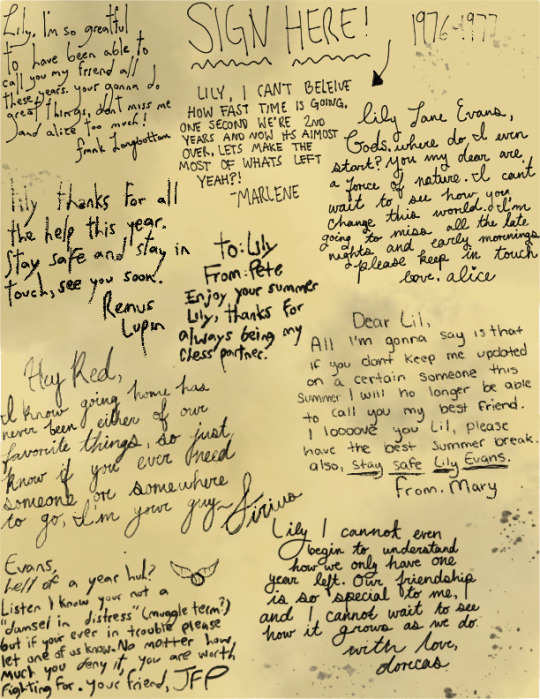 SIGN HERE!
1976-1977
Lily, I'm so greatful
to have been able to
call you my friend all
these years. your gonna do
great things, don't miss me
and alice too much!
frank Longbottom
LILY, I CAN'T BELEIVE
HOW FAST TIME IS GOING,
ONE SECOND WE'RE 2ND
YEARS AND NOW ITS ALMOST
OVER, LETS MAKE THE
MOST OF WHATS LEFT
YEAH?!
-MARLENE
Lily Jane Evans,
Gods, where do I even
start? you my dear are
a force of nature. I can't
wait to see how you
change this world. I'm
going to miss all the late
nights and early mornings
please keep in touch
love. alice
lily thanks for all
the help this year.
Stay safe and stay in
touch, see you soon.
Remus
Lupin
to: Lily
From: Pete
Enjoy your summer
Lily, thanks for
always being my
Chess partner.
Dear Lil,
All I'm gonna say is that
if you dont keep me updated
on a certain someone this
summer I will no longer be able
to call you my best friend.
I loooove you Lil, please
have the best summer break.
also, stay safe Lily Evans.
From. Mary
Hey Red,
I know going home has
never been either of our
favorite things, so just
know if you ever need
someone or somewhere
to go, I'm your guy~
Sirius
Evans,
hell of a year huh?
Listen I know your not a
"damsel in distress" (muggle term?)
but if your ever in trouble please
let one of us know. No matter how
much you deny it, you are worth
fighting for. your friend, JFP
Lily I cannot even
begin to understand
how we only have one
year left. Our friendship
is so special to me,
and I cannot wait to see
how it grows as we do.
with love,
dorcas